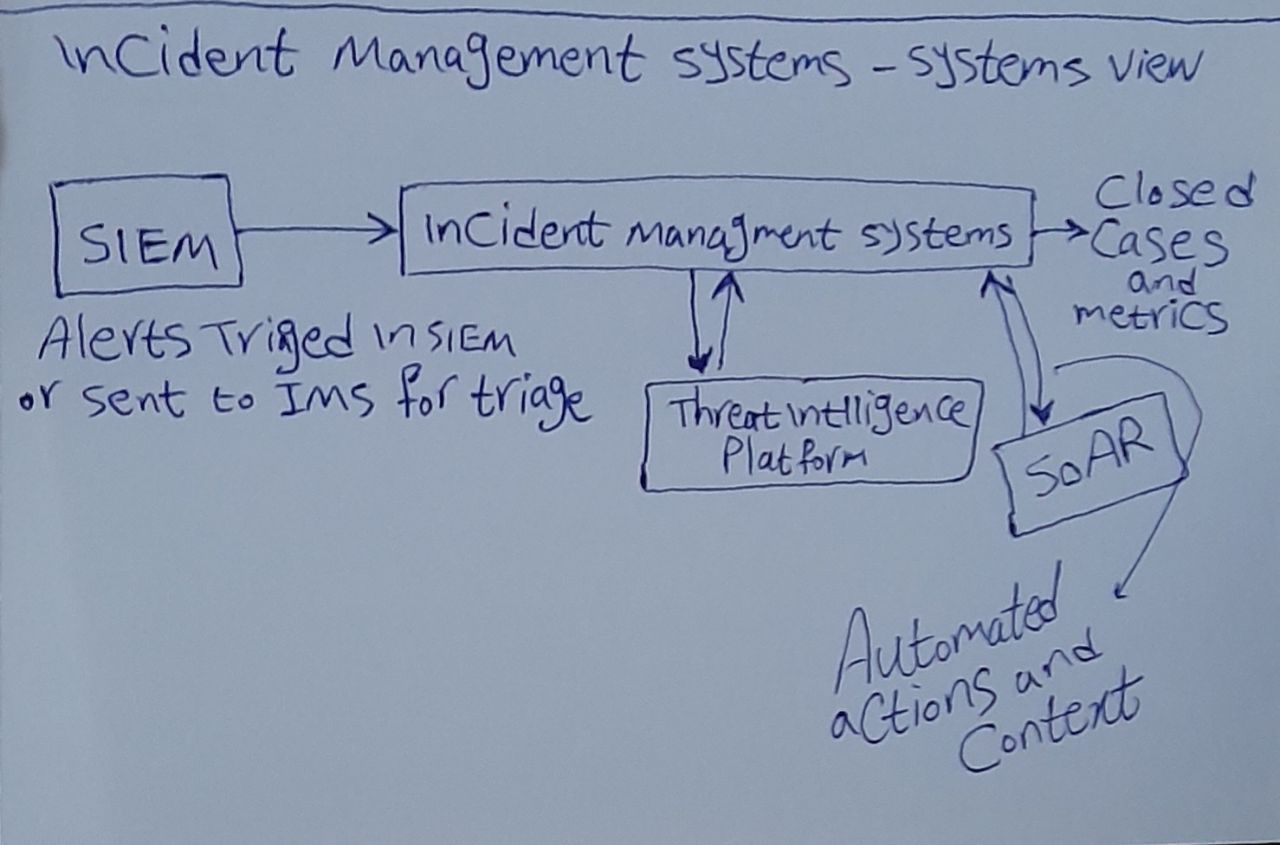 Incident Management systems - systems view
SIEM
Incident managment systems
Closed
Cases
and
metrics
Alerts Triged in SIEM
or sent to IMS for triage
Threat intlligence
Platform
SOAR
Automated
actions and
Context